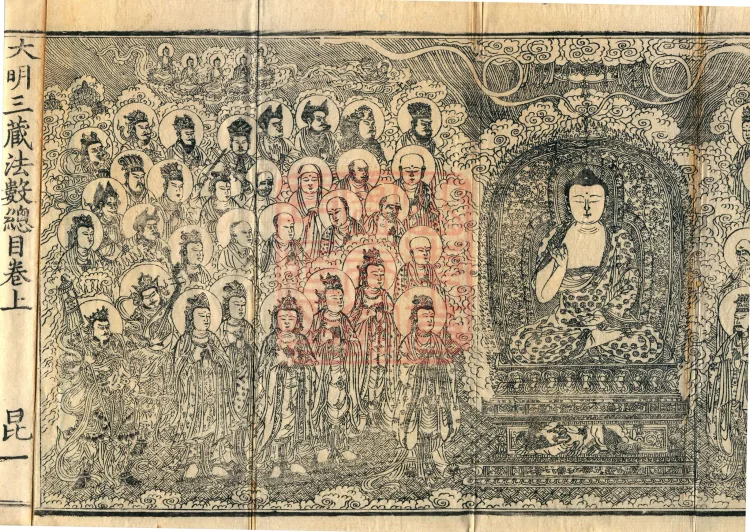 大明三藏法數總目卷上
昆一